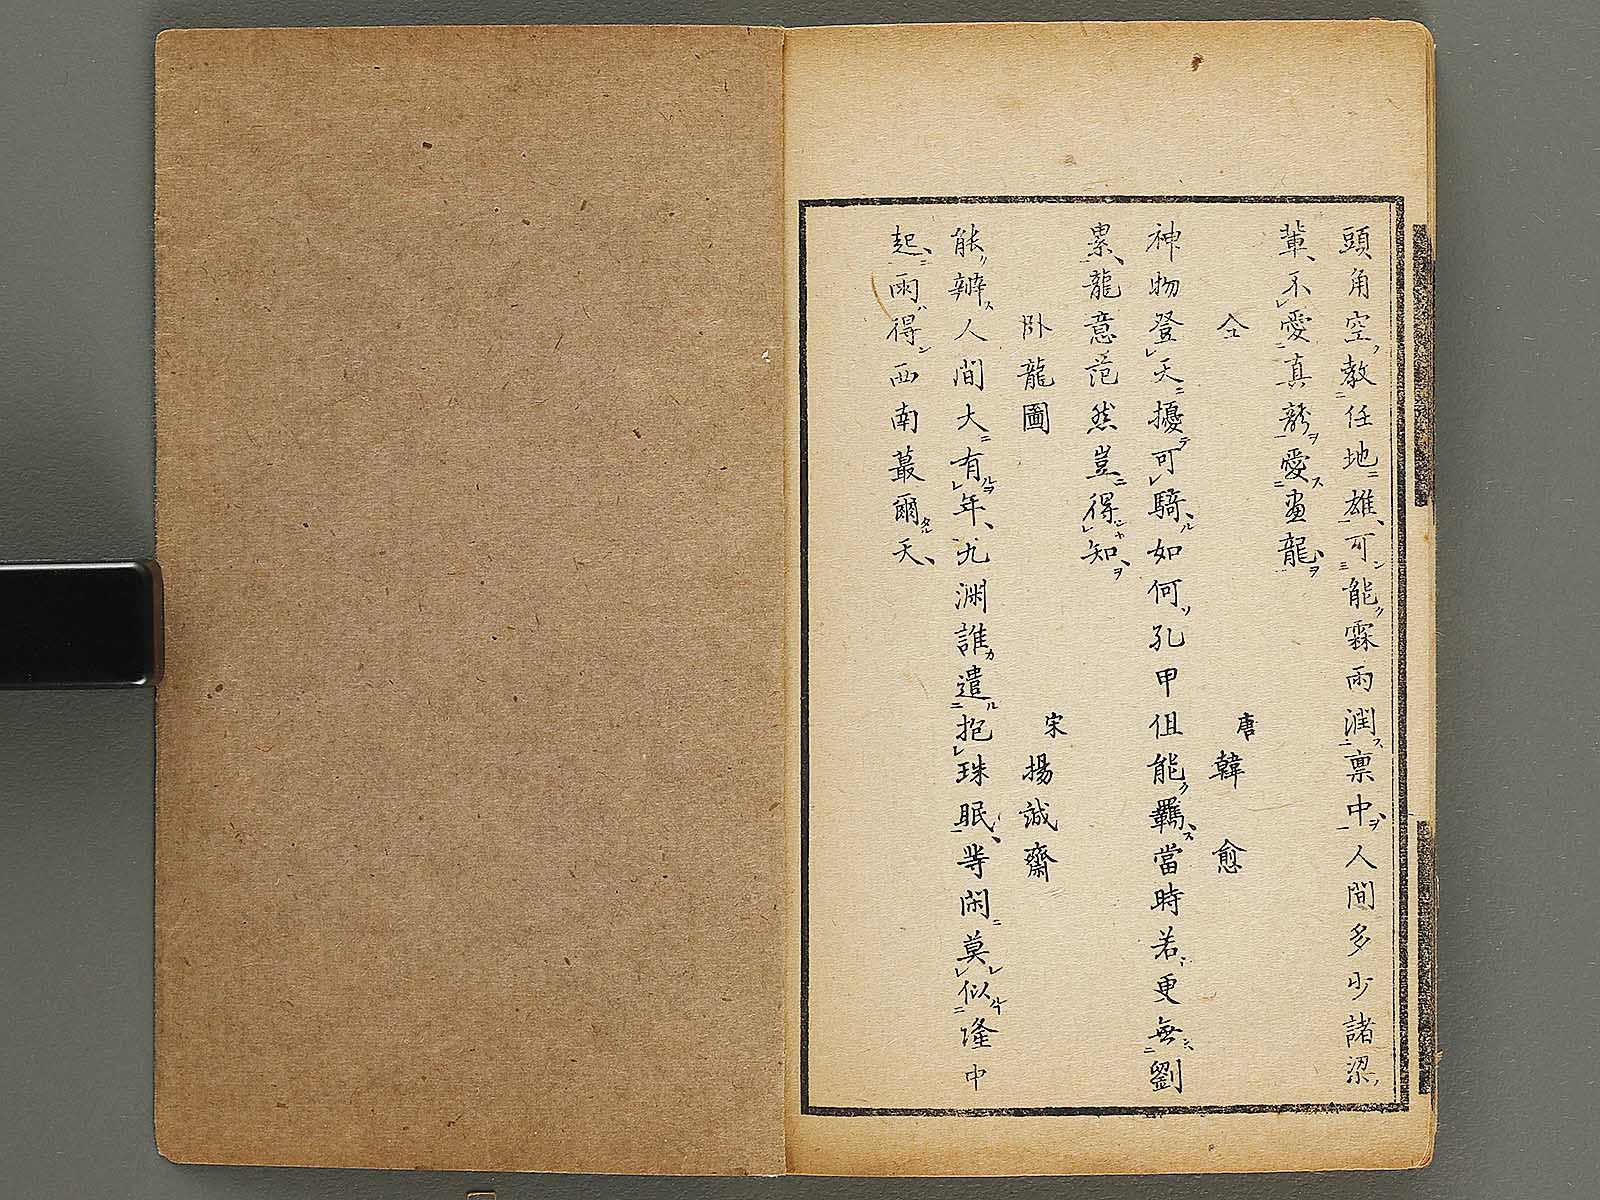 頭角空教任地雄可能霖雨潤禀中人間多少諸梁
輩不愛真龍愛画龍
仝　唐 韓愈
神物登天擾可騎如何孔甲但能羈當時若更無劉
累龍意茫然豈得知
卧龍圖　宋 揚誠齋
能辨人間大有年九淵誰遣抱珠眠等閑莫似隆中
起雨得西南蕞爾天